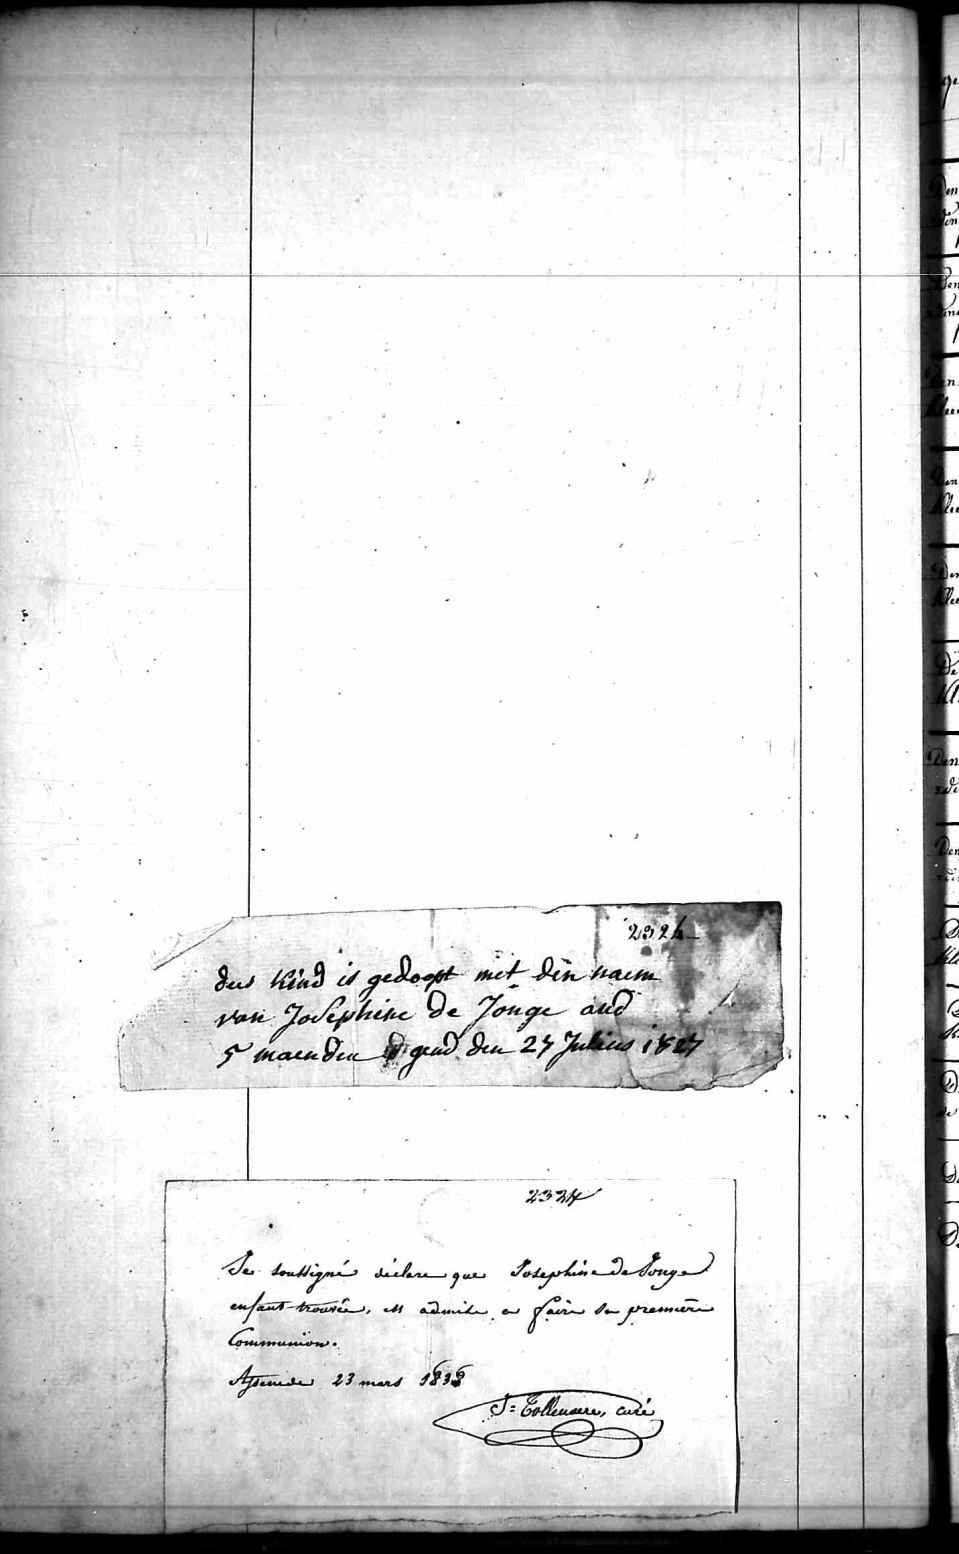 2324
des Kind is gedoopt met den naem
van Josephine de Jonge oud
5 maenden gend den 27 Julius 1827
2324
Je soussigné déclare que Josephine de Jonge
enfant-trouvée, est admise a faire sa première
Communion.
Assenede 23 mars 1838
J= Tollenaere, curé